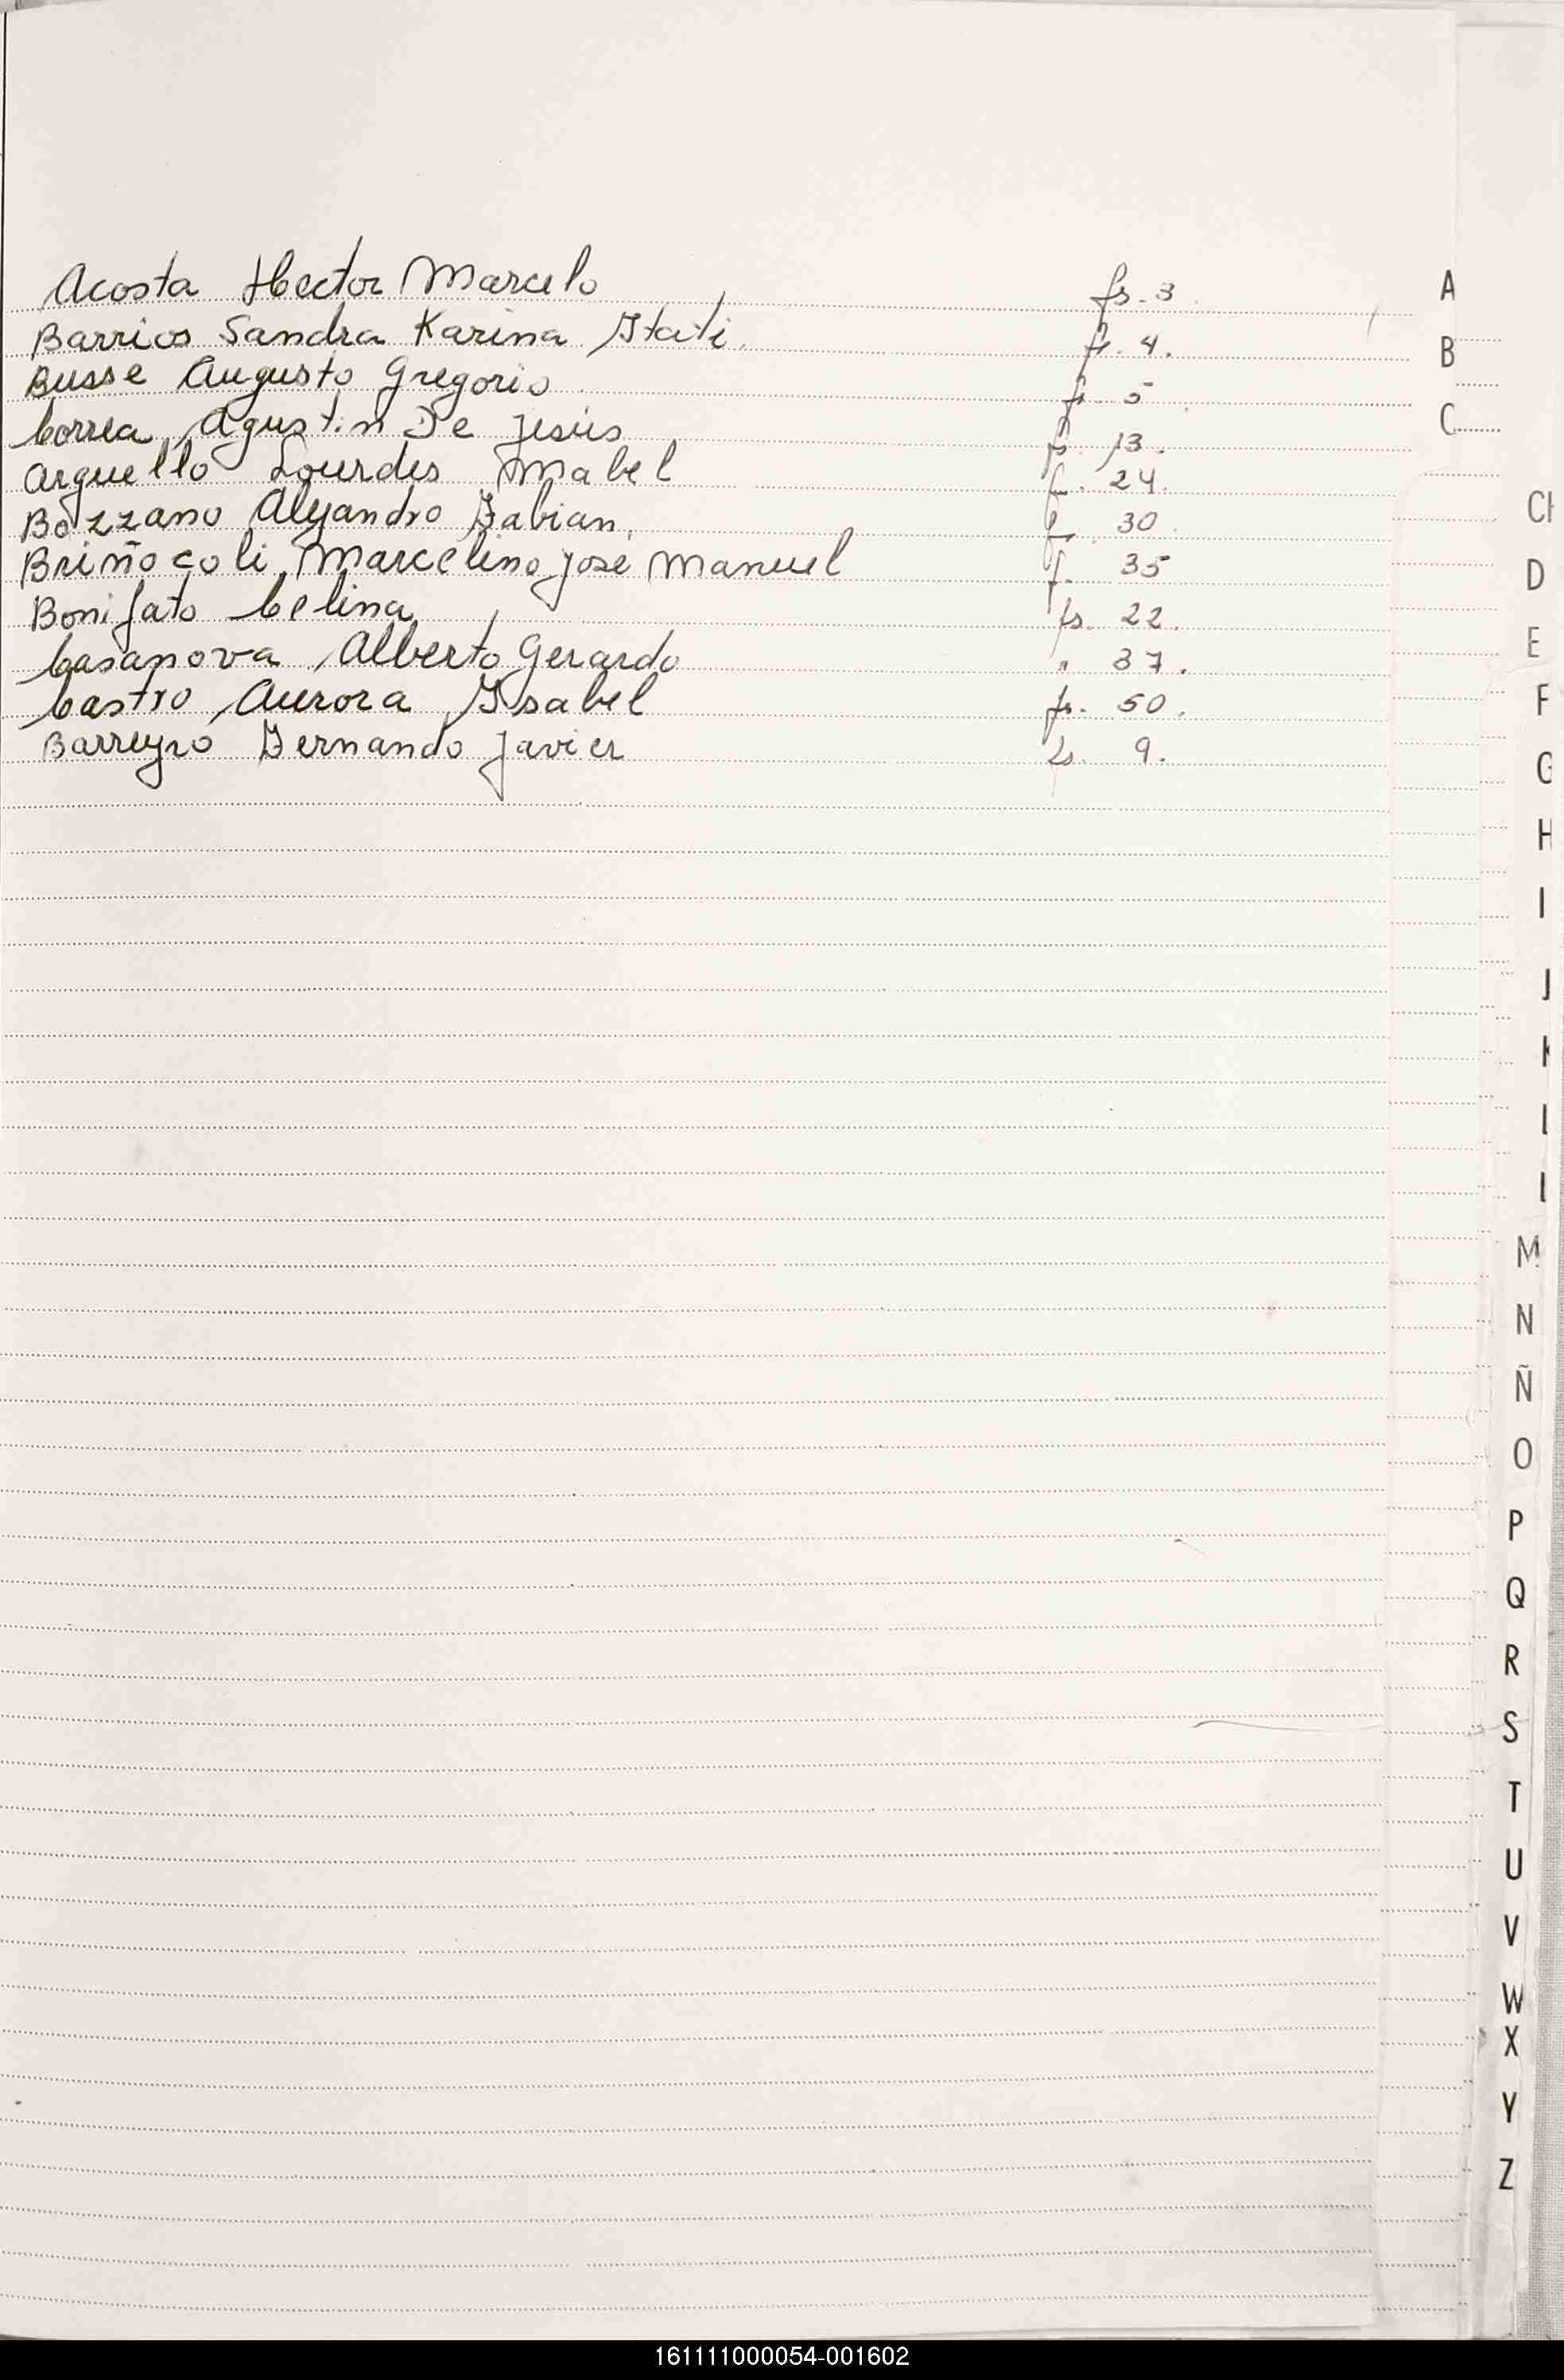 Acosta Hector Marcelo fs. 3
Barrios Sandra Karina Itati. fs. 4.
Busse Augusto Gregorio fs. 5
Correa, Agustin De Jesús fs. 13.
Arguello Lourdes Mabel fs. 24.
Bozzano Alejandro Fabian. fs. 30.
Briñocoli, Marcelino José Manuel fs. 35
Bonifato Celina fs. 22.
Casanova, Alberto Gerardo " 37.
Castro, Aurora Isabel fs. 50.
Barreyro Fernando Javier fs. 9.
A
B
C
CH
D
E
F
G
H
I
J
K
L
L
M
N
Ñ
O
P
Q
R
S
T
U
V
W
X
Y
Z
161111000054-001602